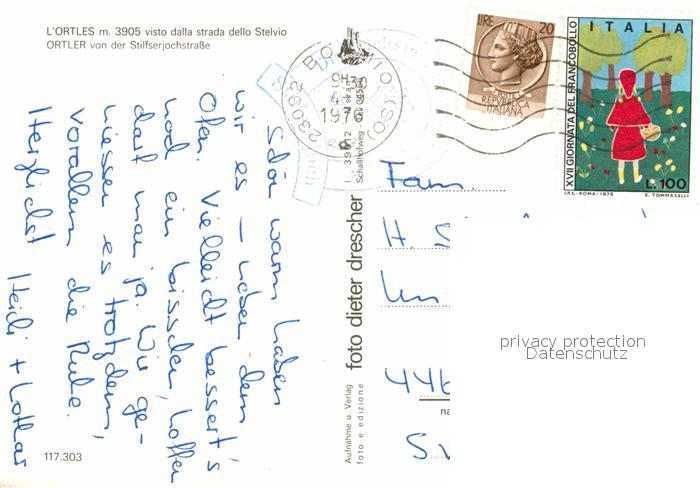 L'ORTLES m. 3905 visto dalla strada dello Stelvio
ORTLER von der Stilfserjochstraße
LIRE 20
REPVBBLICA
ITALIANA
ITALIA
XVII GIORNATA DEL FRANCOBOLLO
L.100
I.P.S.-ROMA-1975 E. TOMMASELLI
23032 BORMIO (SO)
1976
Schön warm haben
wir es – neben dem
Ofen. Vielleicht bessert's
noch ein bisschen, hoffen
darf man ja. Wir ge-
niessen es trotzdem,
vorallem die Ruhe.
Herzlichst Heidi + Lothar
foto dieter drescher
Aufnahme u. Verlag
foto e edizione
Fam.
H.
446
117.303
privacy protection
Datenschutz